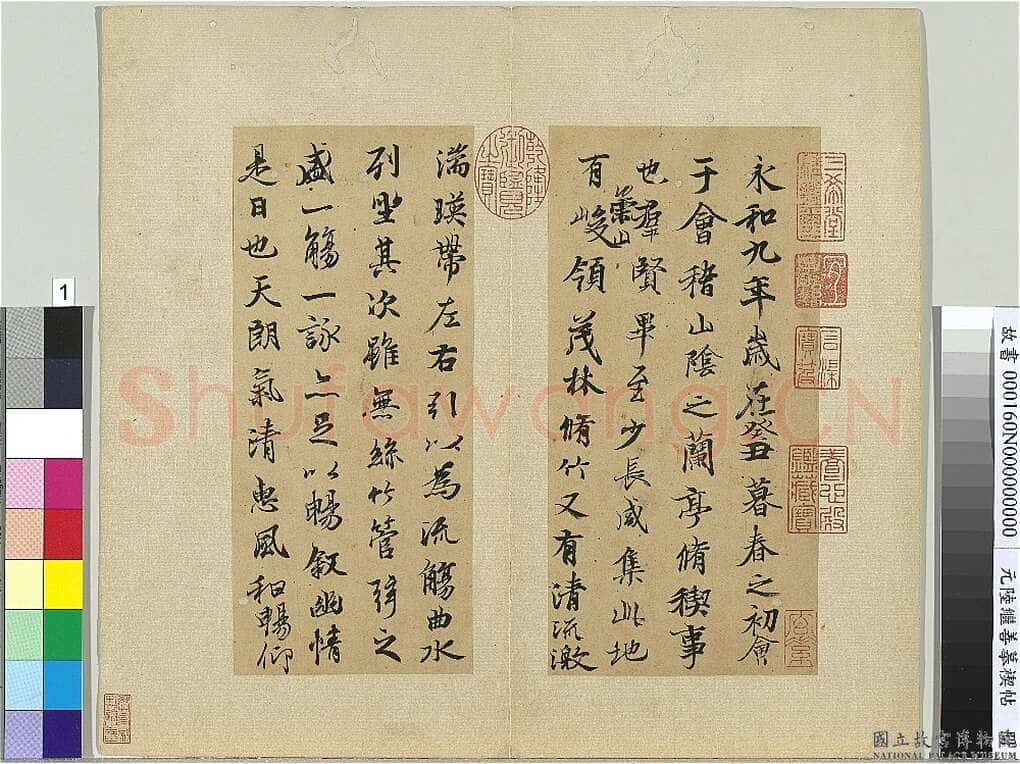 永和九年歲在癸丑暮春之初會
于會稽山陰之蘭亭脩稧事
也羣賢畢至少長咸集此地
有崇山峻領茂林脩竹又有清流激
湍暎帶左右引以為流觴曲水
列坐其次雖無絲竹管弦之
盛一觴一詠亦足以暢叙幽情
是日也天朗氣清惠風和暢仰
三希堂精鑑璽
宜子孫
石渠寶笈
養心殿鑑藏寶
乾隆御覽之寶
1
Shufawang.CN
故書 000160N000000000
元陸繼善摹禊帖
國立故宮博物院
NATIONAL PALACE MUSEUM